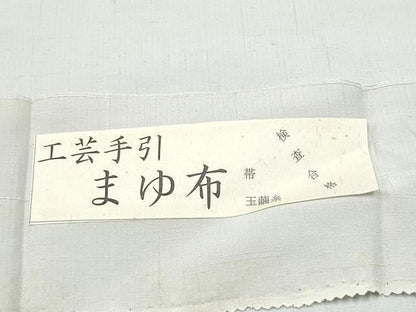 工芸手引
まゆ布
検査合格
帯
玉繭糸